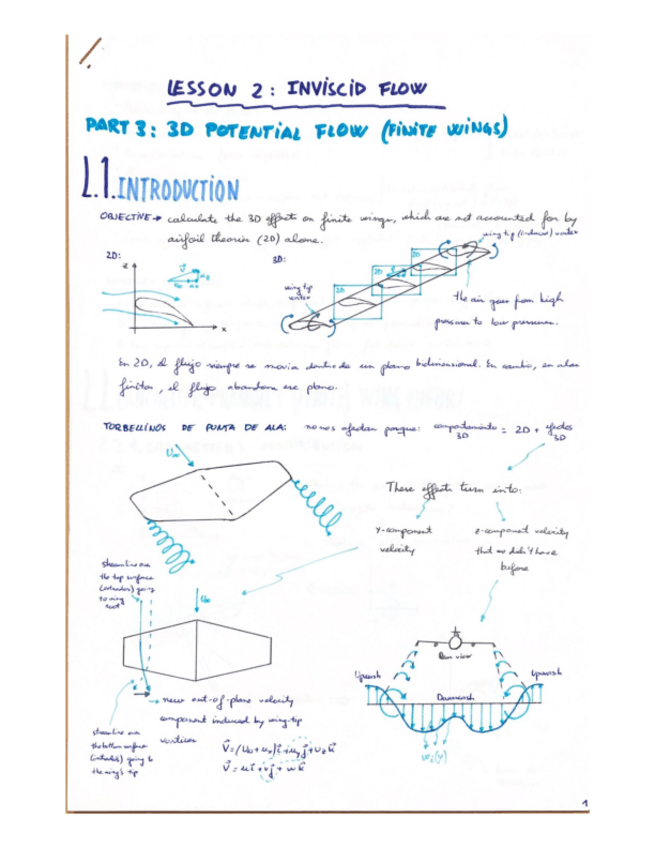 LESSON 2: INVISCID FLOW
PART 3: 3D POTENTIAL FLOW (FINITE WINGS)
L.1. INTRODUCTION
OBJECTIVE → calculate the 3D effect on finite wings, which are not accounted for by
airfoil theories (2D) alone.
wing tip (induced) vortex
2D:
3D:
z
x
wing tip
vortex
2D
2D
2D
the air goes from high
pressure to low pressure.
En 2D, el flujo siempre se movía dentro de un plano bidimensional. En cambio, en alas
finitas, el flujo abandona ese plano.
TORBELLINOS DE PUNTA DE ALA: no nos afectan porque: comportamiento 3D = 2D + efectos 3D
U∞
These effects turn into:
y-component
velocity
z-component velocity
that we didn't have
before
streamline over
the top surface
(extradós) going
to wing
root
U∞
Rear view
Upwash
Downwash
Upwash
new out-of-plane velocity
component induced by wing-tip
vortices
streamline over
the bottom surface
(intradós) going to
the wing's tip
V⃗ = (U₀ + uₓ)i⃗ + u_y j⃗ + u_z k⃗
V⃗ = ui⃗ + vj⃗ + wk⃗
1